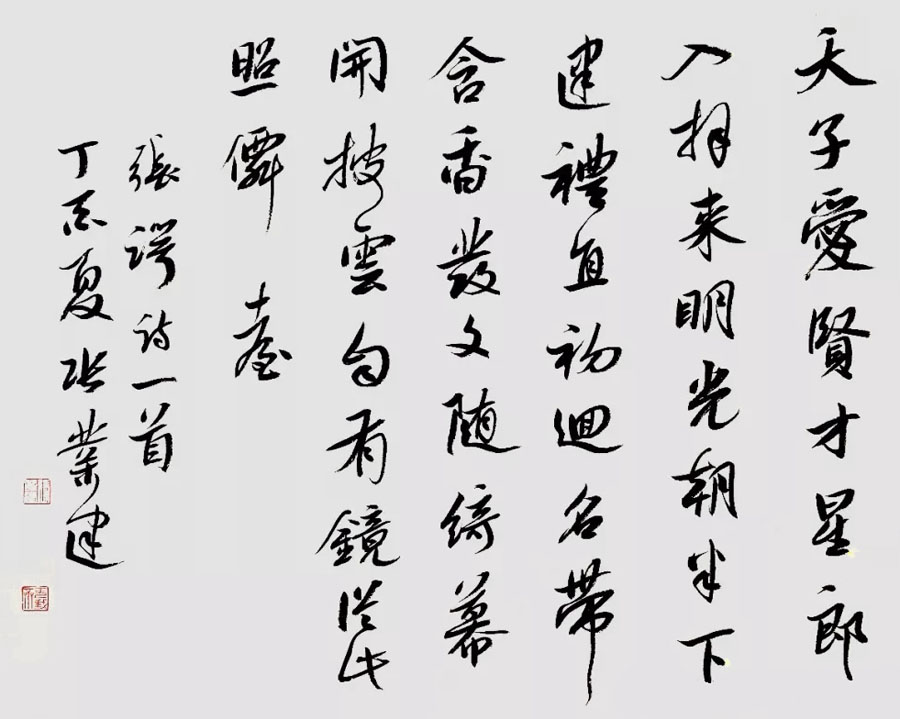 天子愛賢才星郎
入拜来明光朝半下
建禮直初迴名帶
含香發文随綺幕
開披雲自有鏡從此
照僊臺
張諤诗一首
丁酉夏张業建